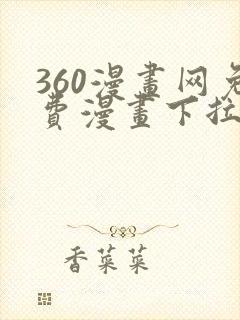 360漫畫网免
費漫畫下拉
香菜菜